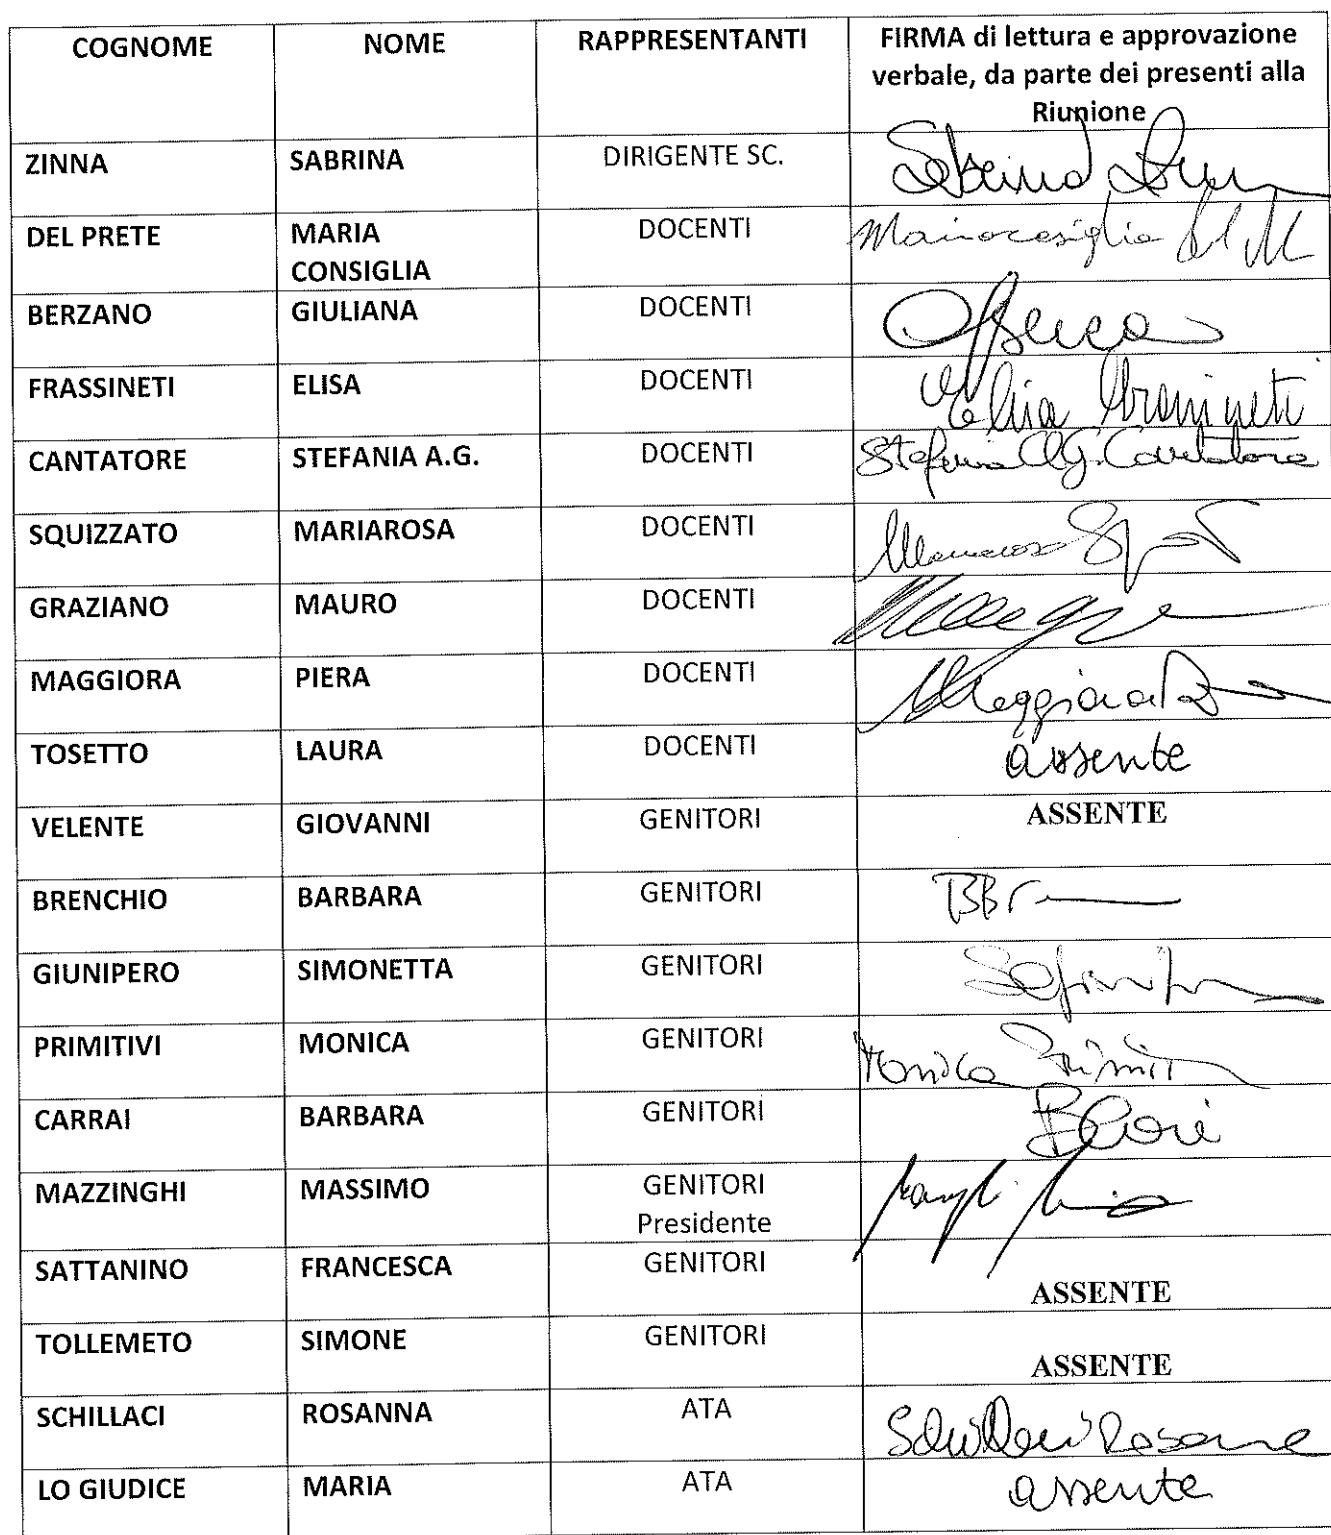 COGNOME NOME RAPPRESENTANTI FIRMA di lettura e approvazione
verbale, da parte dei presenti alla
Riunione
ZINNA SABRINA DIRIGENTE SC.
DEL PRETE MARIA DOCENTI
CONSIGLIA
BERZANO GIULIANA DOCENTI
FRASSINETI ELISA DOCENTI
CANTATORE STEFANIA A.G. DOCENTI Stefania A.G. Cantatore
SQUIZZATO MARIAROSA DOCENTI
GRAZIANO MAURO DOCENTI
MAGGIORA PIERA DOCENTI Maggiora
TOSETTO LAURA DOCENTI assente
VELENTE GIOVANNI GENITORI ASSENTE
BRENCHIO BARBARA GENITORI
GIUNIPERO SIMONETTA GENITORI
PRIMITIVI MONICA GENITORI Monica
CARRAI BARBARA GENITORI
MAZZINGHI MASSIMO GENITORI
Presidente
SATTANINO FRANCESCA GENITORI ASSENTE
TOLLEMETO SIMONE GENITORI ASSENTE
SCHILLACI ROSANNA ATA Schillaci Rosanna
LO GIUDICE MARIA ATA assente